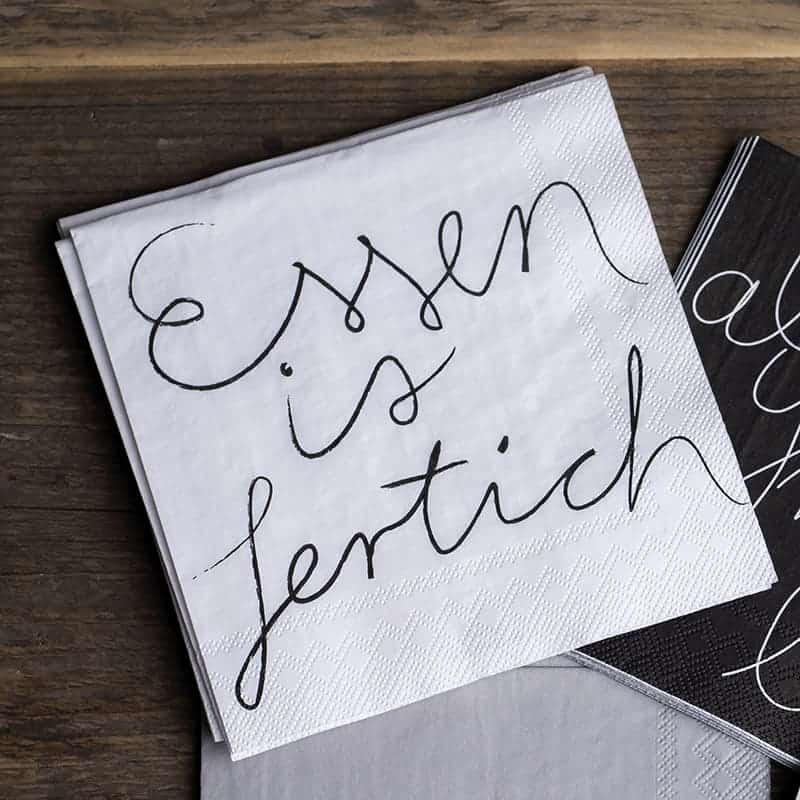 Essen
is
fertich